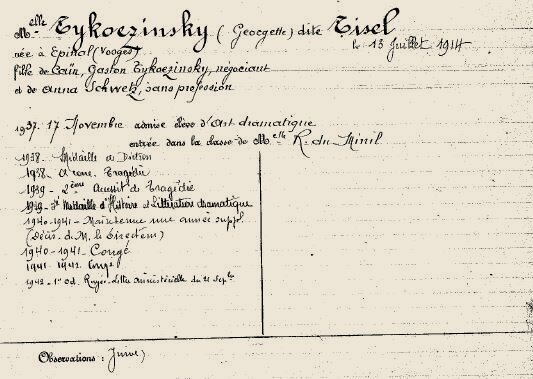 Melle Tykoezinsky (Georgette) dite Tisel
née à Epinal (Vosges) le 13 Juillet 1914
fille de Caïn, Gaston Tykoezinsky, négociant
et de Anna Schwetz, sans profession
1937. 17 Novembre admise élève d'Art dramatique
entrée dans la classe de Melle R. du Minil
1938. Médaille de Diction
1938. Tragédie
1939 - 2ème Accessit de Tragédie
1939 - Médaille d'Histoire et Littérature dramatique
1940-1941 - Maintenue une année suppl.
(Décis. d. M. le Directeur)
1940-1941 - Congé
1941 1942. Congé
1942 - 1er Oct. Rayée. Lettre ministérielle du 21 Sept
Observations : Juive)